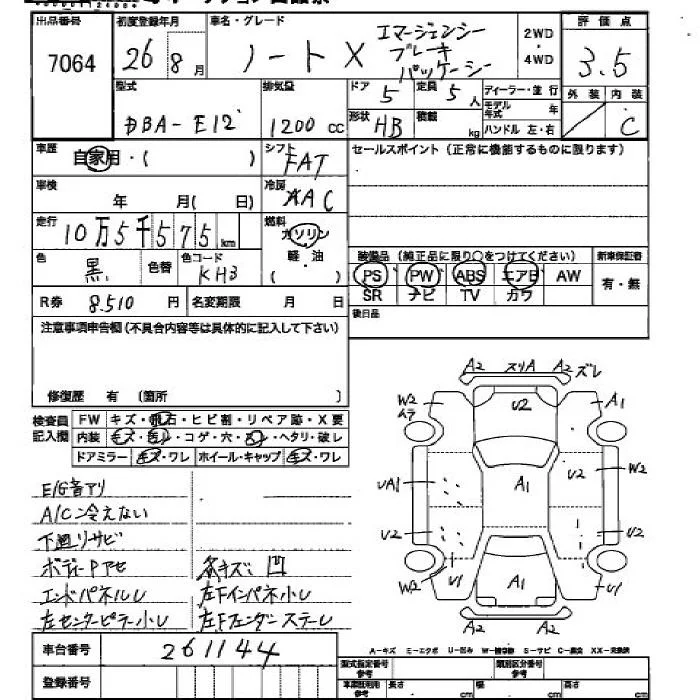 出品番号
7064
初度登録年月
26年8月
車名・グレード
ノート X エマージェンシー
ブレーキ
パッケージ
2WD
・
4WD
評価点
3.5
外装 内装
C
型式
DBA-E12
排気量
1200 cc
ドア 5
定員 5人
形状 HB
積載 kg
ディーラー・並行
モデル年式 年
ハンドル 左・右
車歴
自家用・( )
シフト
FAT
セールスポイント(正常に機能するものに限ります)
車検
年 月( 日)
冷房
AAC
走行
10万5千575km
燃料
ガソリン
軽・油
( )
色
黒
色替
色コード
KH3
装備品(純正品に限り○をつけてください)
PS PW ABS エアB AW
SR ナビ TV カワ
新車保証書
有・無
R券 8.510 円
名変期限 月 日
後日品
注意事項申告欄(不具合内容等は具体的に記入して下さい)
修復歴 有 (箇所 )
検査員
記入欄
FW キズ・飛石・ヒビ割・リペア跡・X要
内装 キズ・汚レ・コゲ・穴・スレ・ヘタリ・破レ
ドアミラー キズ・ワレ ホイール・キャップ キズ・ワレ
E/G音アリ
A/C冷えない
下廻リサビ
ボディーPアセ
各キズ凹
エンドパネルし
左下インパネ小し
左センターピラー小し
左Fフェンダーステーし
A2 スリA A2 ズレ
W2
ムラ
U2
A1
UA1
A1
U2
W2
U2
U2
W2
U1
A1
U1
A2 A2
車台番号
261144
登録番号
A-キズ E-エクボ U-凹み W-補修跡 S-サビ C-腐食 XX-交換済
型式指定番号
参考
類別区分番号
参考
車庫証明用
参考
長さ cm
幅 cm
高さ cm